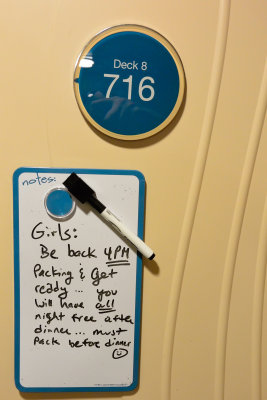 Deck 8
716
notes:
Girls:
Be back 4PM
Packing & Get
ready ... you
will have all
night free after
dinner ... must
pack before dinner